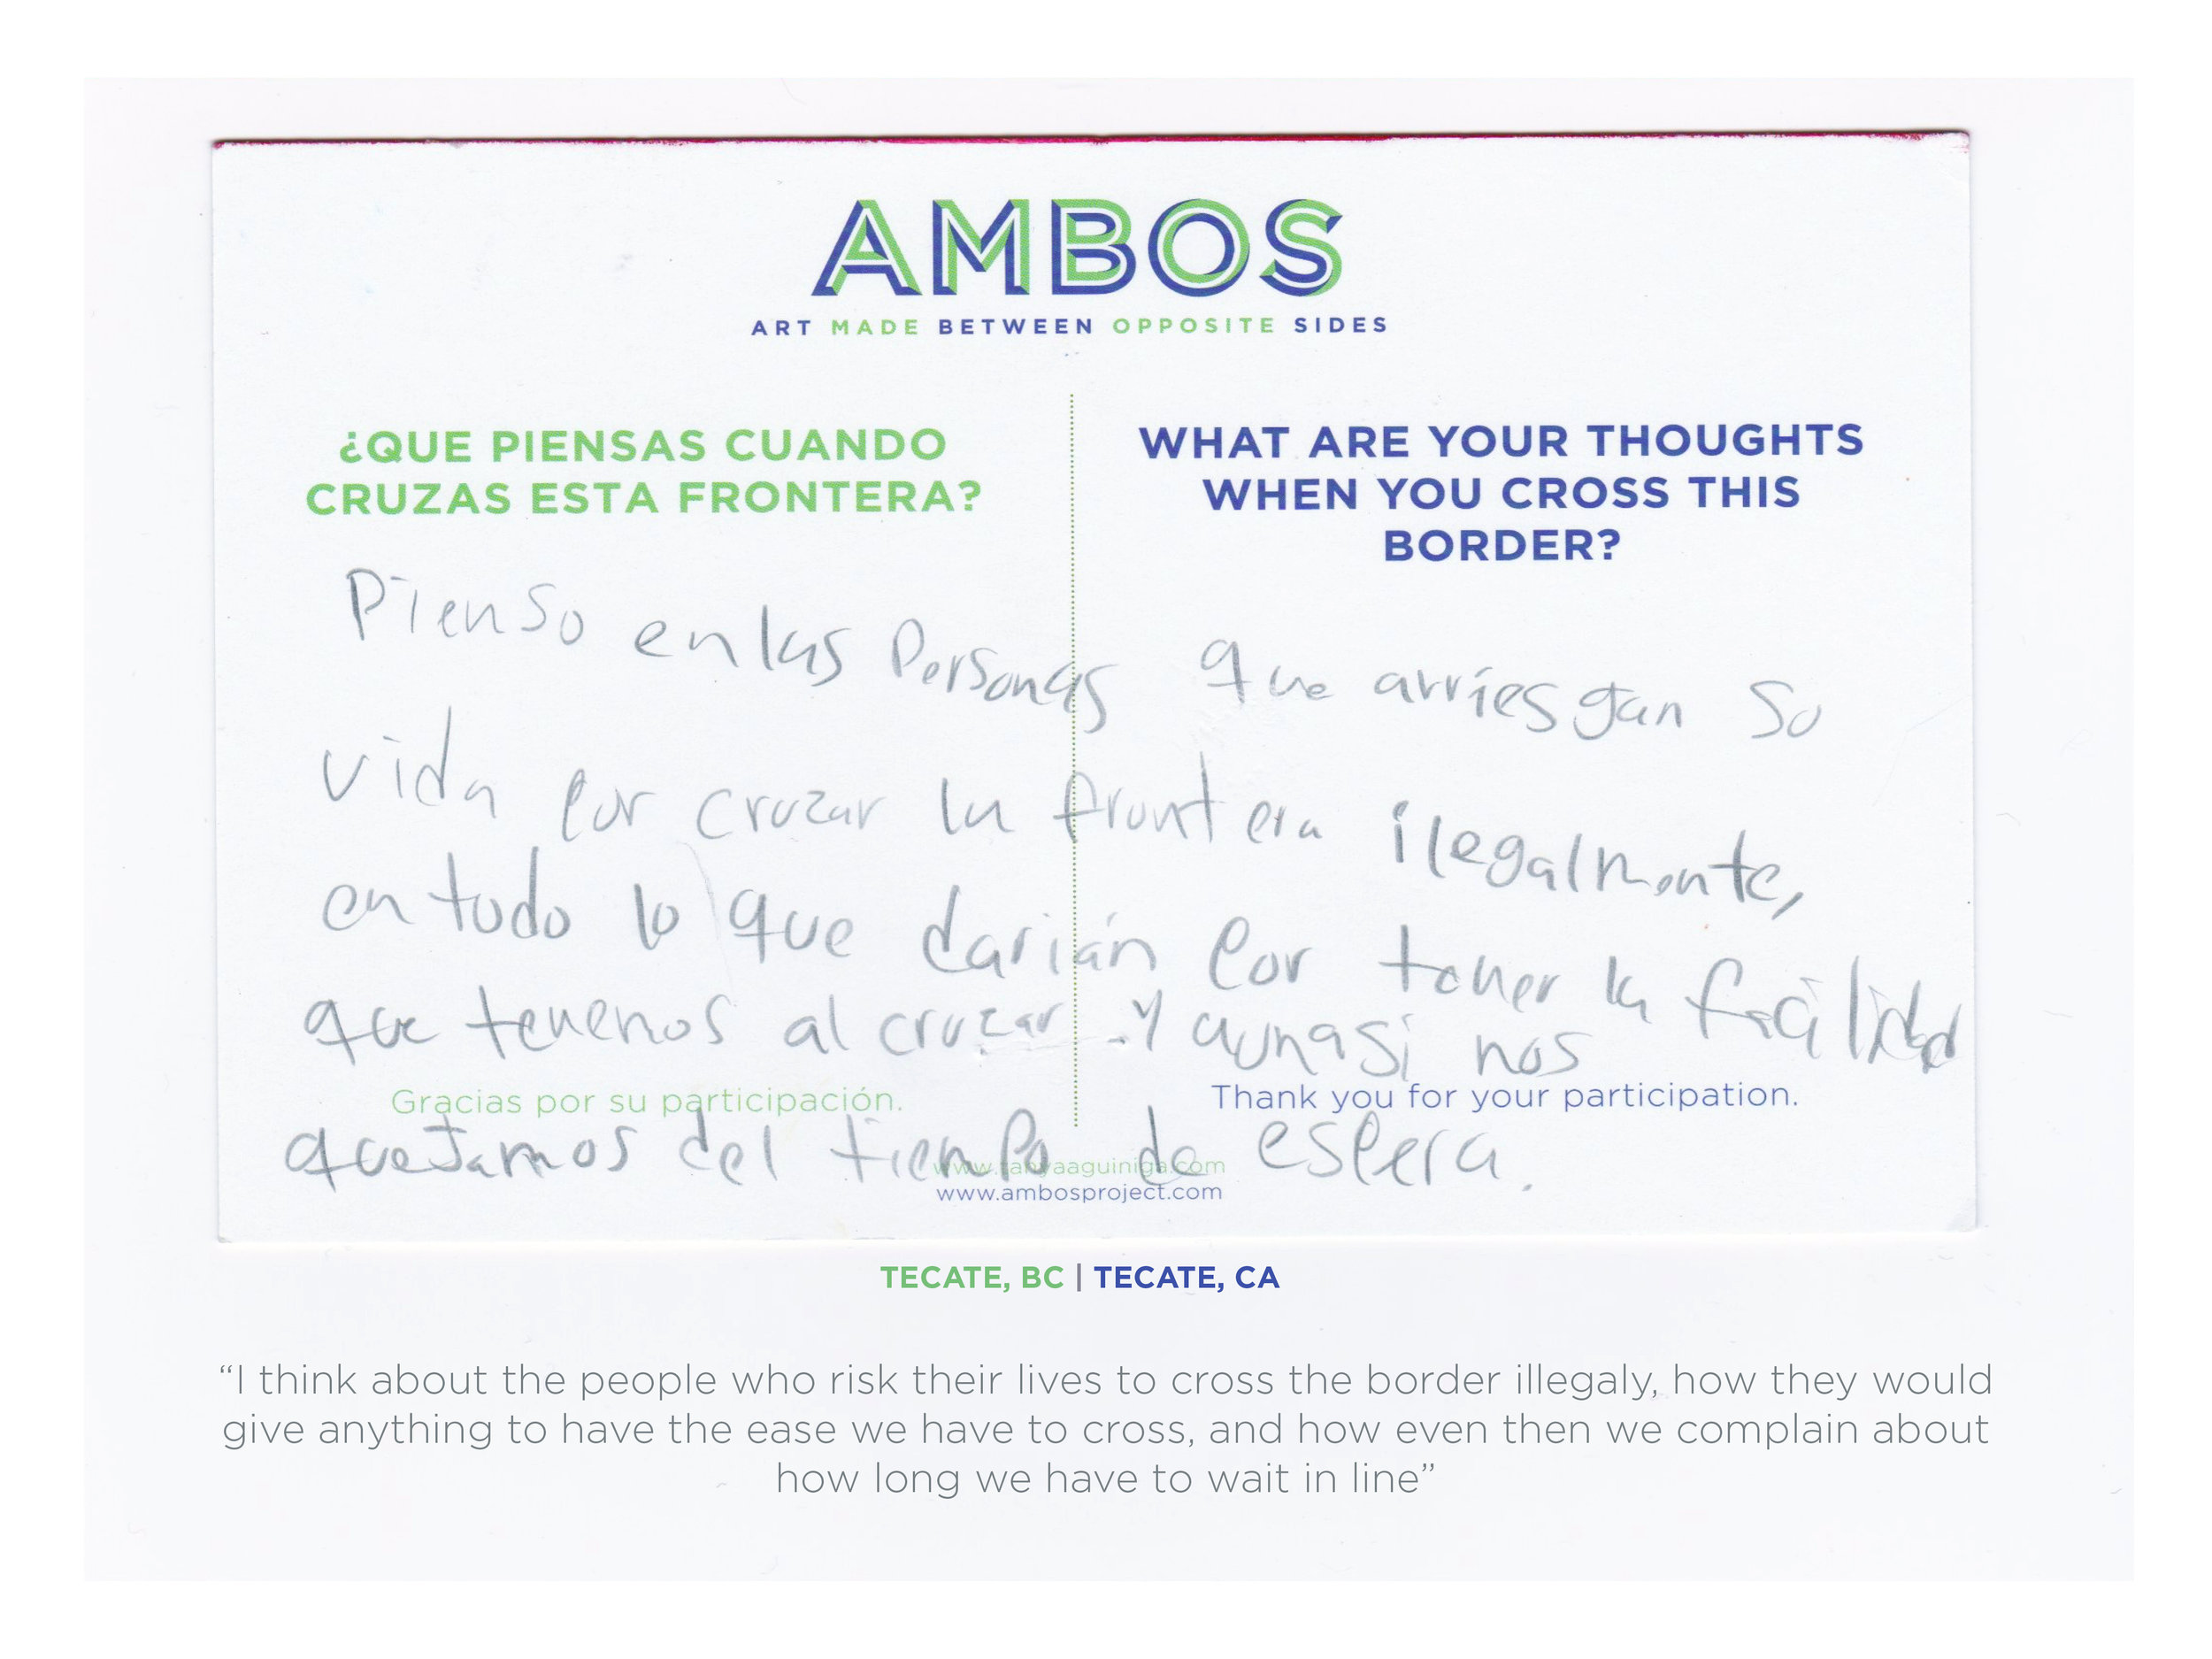 AMBOS
ART MADE BETWEEN OPPOSITE SIDES
¿QUE PIENSAS CUANDO
CRUZAS ESTA FRONTERA?
WHAT ARE YOUR THOUGHTS
WHEN YOU CROSS THIS
BORDER?
Pienso en las Personas que arriesgan su
vida por cruzar la frontera ilegalmente,
en todo lo que darían por tener la facilidad
que tenemos al cruzar. Y aunasí nos
Gracias por su participación.
Thank you for your participation.
quejamos del tiempo de espera.
www.tanyaaguiniga.com
www.ambosproject.com
TECATE, BC | TECATE, CA
“I think about the people who risk their lives to cross the border illegaly, how they would
give anything to have the ease we have to cross, and how even then we complain about
how long we have to wait in line”